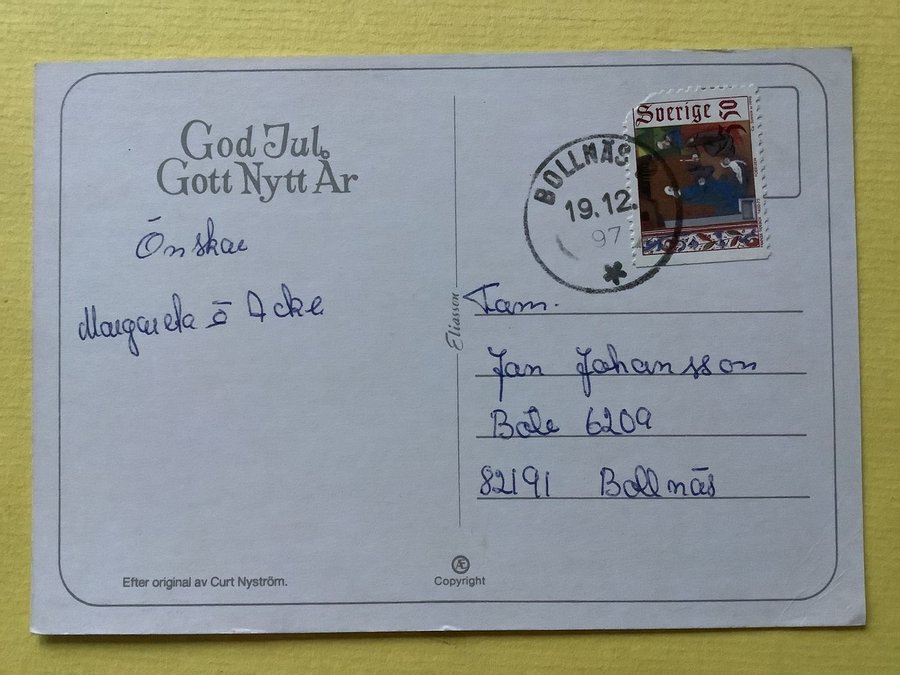 God Jul
Gott Nytt År
Önskar
Margareta ō Acke
Efter original av Curt Nyström.
Eliasson
Æ
Copyright
Sverige
50
BOLLNÄS
19.12.
97
Fam.
Jan Johansson
Böle 6209
82191 Bollnäs